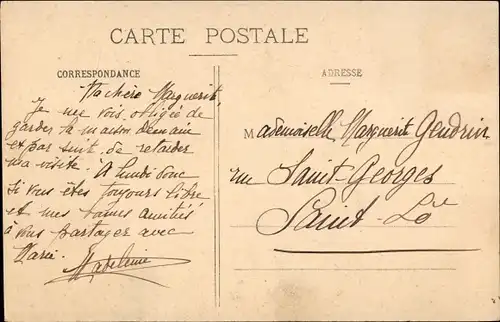 CARTE POSTALE
CORRESPONDANCE
Ma chère Marguerit,
Je me vois obligée de
garder la maison demain
et par suit de retarder
ma visite. A lundi donc
si vous êtes toujours libre
et mes amitiés
à vous partager avec
Marie.
Madeleine
ADRESSE
Mademoiselle Marguerit Gendrin
rue Saint-Georges
Saint-Lô